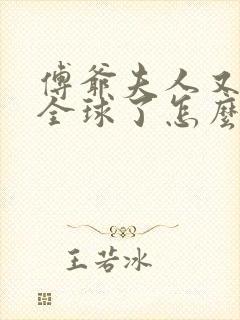 傅爺夫人又
全球了怎麼
王若冰